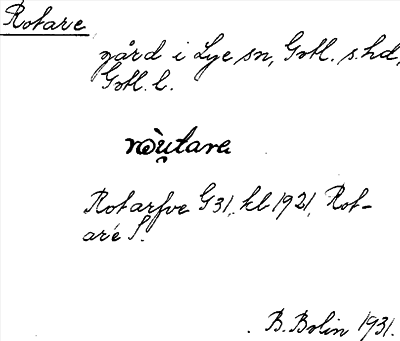 Rotare
gård i Lye sn, Gotl. s. hd,
Gotl. l.
ròu̯tara
Rotarfve G31, kb 1921, Rot-
aré S.
B. Bolin 1931.